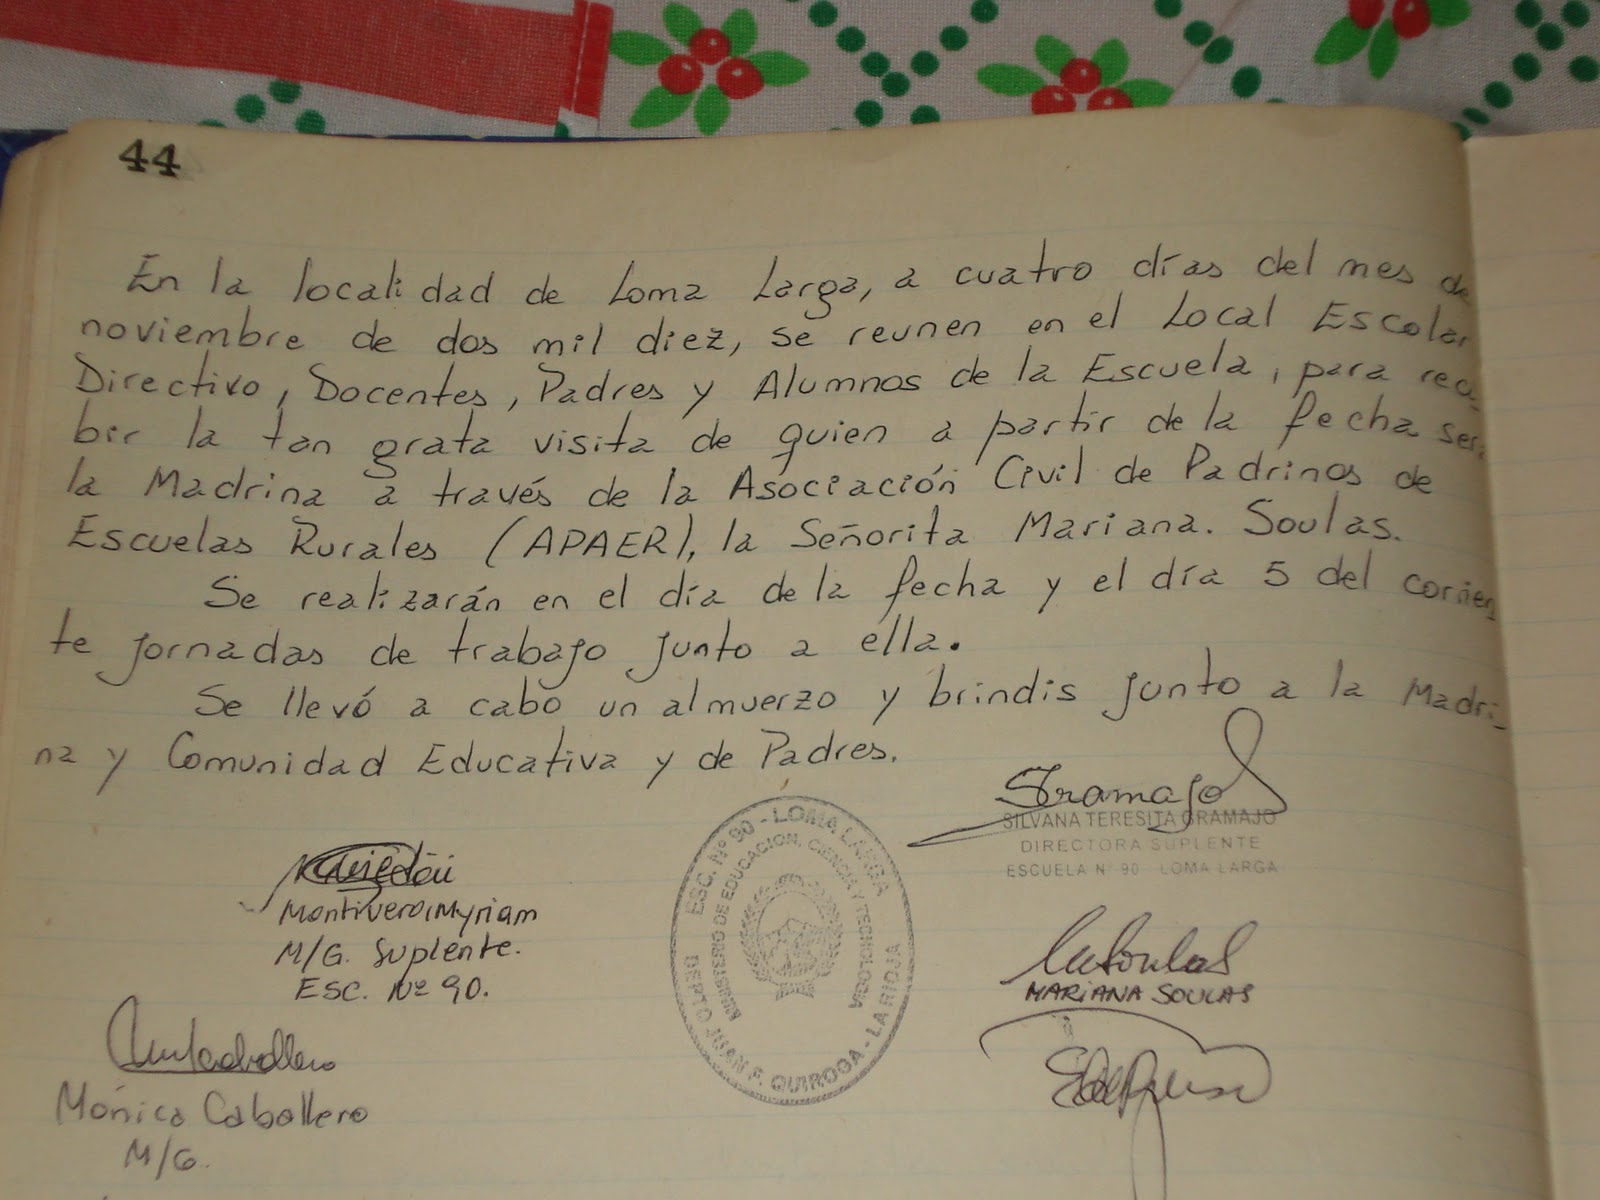 44
En la localidad de Loma Larga, a cuatro días del mes de
noviembre de dos mil diez, se reunen en el Local Escolar
Directivo, Docentes, Padres y Alumnos de la Escuela, para reci-
bir la tan grata visita de quien a partir de la fecha será
la Madrina a través de la Asociación Civil de Padrinos de
Escuelas Rurales (APAER), la Señorita Mariana. Soulas.
Se realizarán en el día de la fecha y el día 5 del corrien
te jornadas de trabajo junto a ella.
Se llevó a cabo un almuerzo y brindis junto a la Madri-
na y Comunidad Educativa y de Padres.
Gramajo
SILVANA TERESITA GRAMAJO
DIRECTORA SUPLENTE
ESCUELA N° 90 - LOMA LARGA
Montivero, Myriam
M/G. Suplente.
ESC. Nº 90.
ESC. Nº 90 - LOMA LARGA
MINISTERIO DE EDUCACION, CIENCIA Y TECNOLOGIA
DEPTO JUAN F. QUIROGA - LA RIOJA
MSoulas
MARIANA SOULAS
Mónica Caballero
M/G.